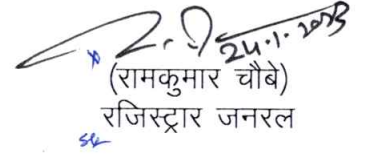 24.1.2023
(रामकुमार चौबे)
रजिस्ट्रार जनरल